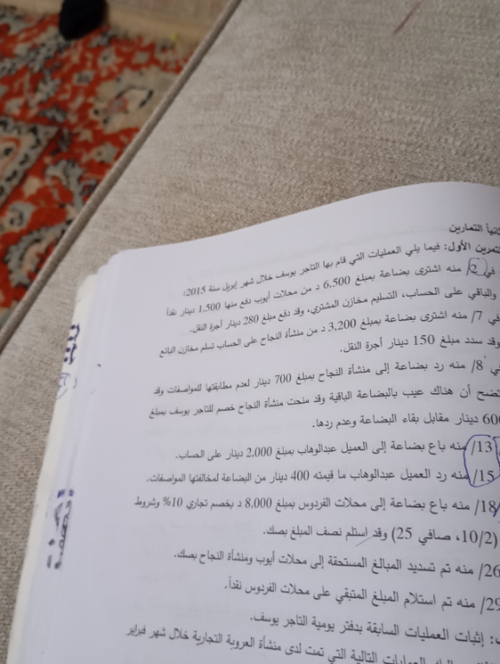 ثانياً التمارين
التمرين الأول: فيما يلي العمليات التي قام بها التاجر يوسف خلال شهر إبريل سنة 2015:
في 2/ منه اشترى بضاعة بمبلغ 6.500 د من محلات أيوب دفع منها 1.500 دينار نقداً
والباقي على الحساب، التسليم مخازن المشتري، وقد دفع مبلغ 280 دينار أجرة النقل.
في 7/ منه اشترى بضاعة بمبلغ 3.200 د من منشأة النجاح على الحساب تسلم مخازن البائع
وقد سدد مبلغ 150 دينار أجرة النقل.
في 8/ منه رد بضاعة إلى منشأة النجاح بمبلغ 700 دينار لعدم مطابقتها للمواصفات وقد
تضح أن هناك عيب بالبضاعة الباقية وقد منحت منشأة النجاح خصم للتاجر يوسف بمبلغ
600 دينار مقابل بقاء البضاعة وعدم ردها.
13/ منه باع بضاعة إلى العميل عبدالوهاب بمبلغ 2.000 دينار على الحساب.
15/ منه رد العميل عبدالوهاب ما قيمته 400 دينار من البضاعة لمخالفتها المواصفات.
18/ منه باع بضاعة إلى محلات الفردوس بمبلغ 8.000 د بخصم تجاري 10% وشروط
(10/2، صافي 25) وقد استلم نصف المبلغ بصك.
26/ منه تم تسديد المبالغ المستحقة إلى محلات أيوب ومنشأة النجاح بصك.
29/ منه تم استلام المبلغ المتبقي على محلات الفردوس نقداً.
: إثبات العمليات السابقة بدفتر يومية التاجر يوسف.
العمليات التالية التي تمت لدى منشأة العروبة التجارية خلال شهر فبراير